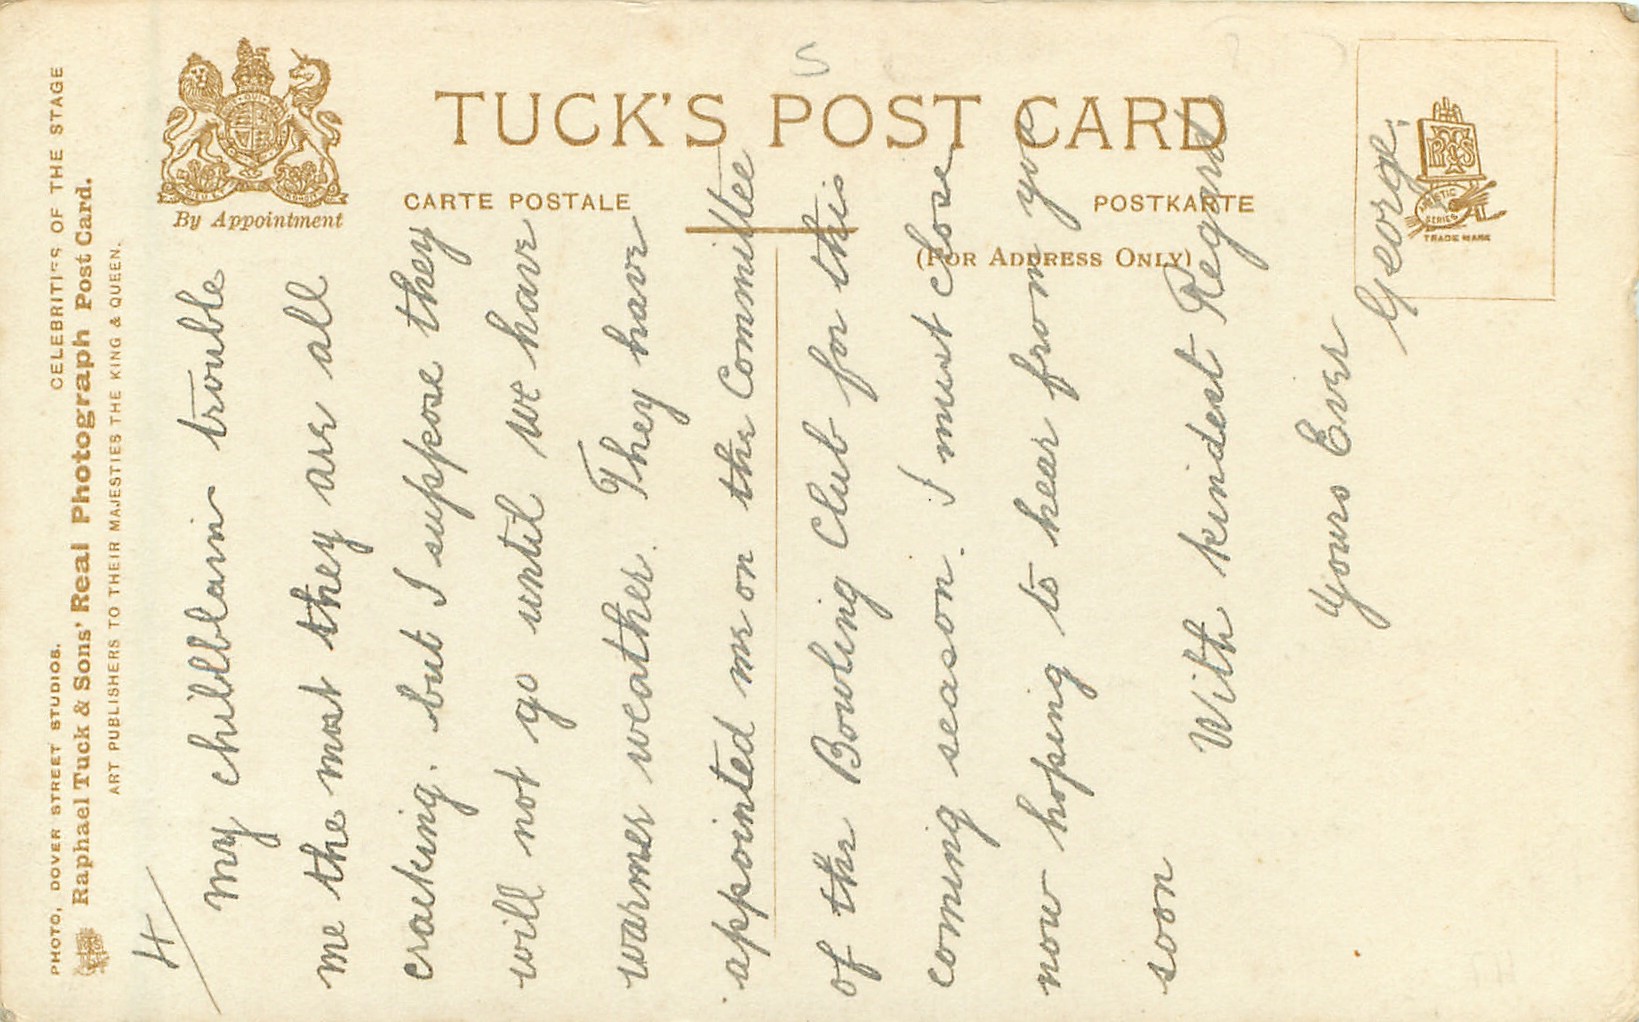 TUCK'S POST CARD
CARTE POSTALE
POSTKARTE
(FOR ADDRESS ONLY)
By Appointment
TRADE MARK
PHOTO, DOVER STREET STUDIOS. CELEBRITIES OF THE STAGE
Raphael Tuck & Sons' Real Photograph Post Card.
ART PUBLISHERS TO THEIR MAJESTIES THE KING & QUEEN.
S
4
My chillblain trouble
me the most they are all
cracking. but I suppose they
will not go until we have
warmer weather. They have
appointed me on the Committee
of the Bowling Club for this
coming season. I must close
now hoping to hear from you
soon
With kindest Regards
Yours Ever
George.